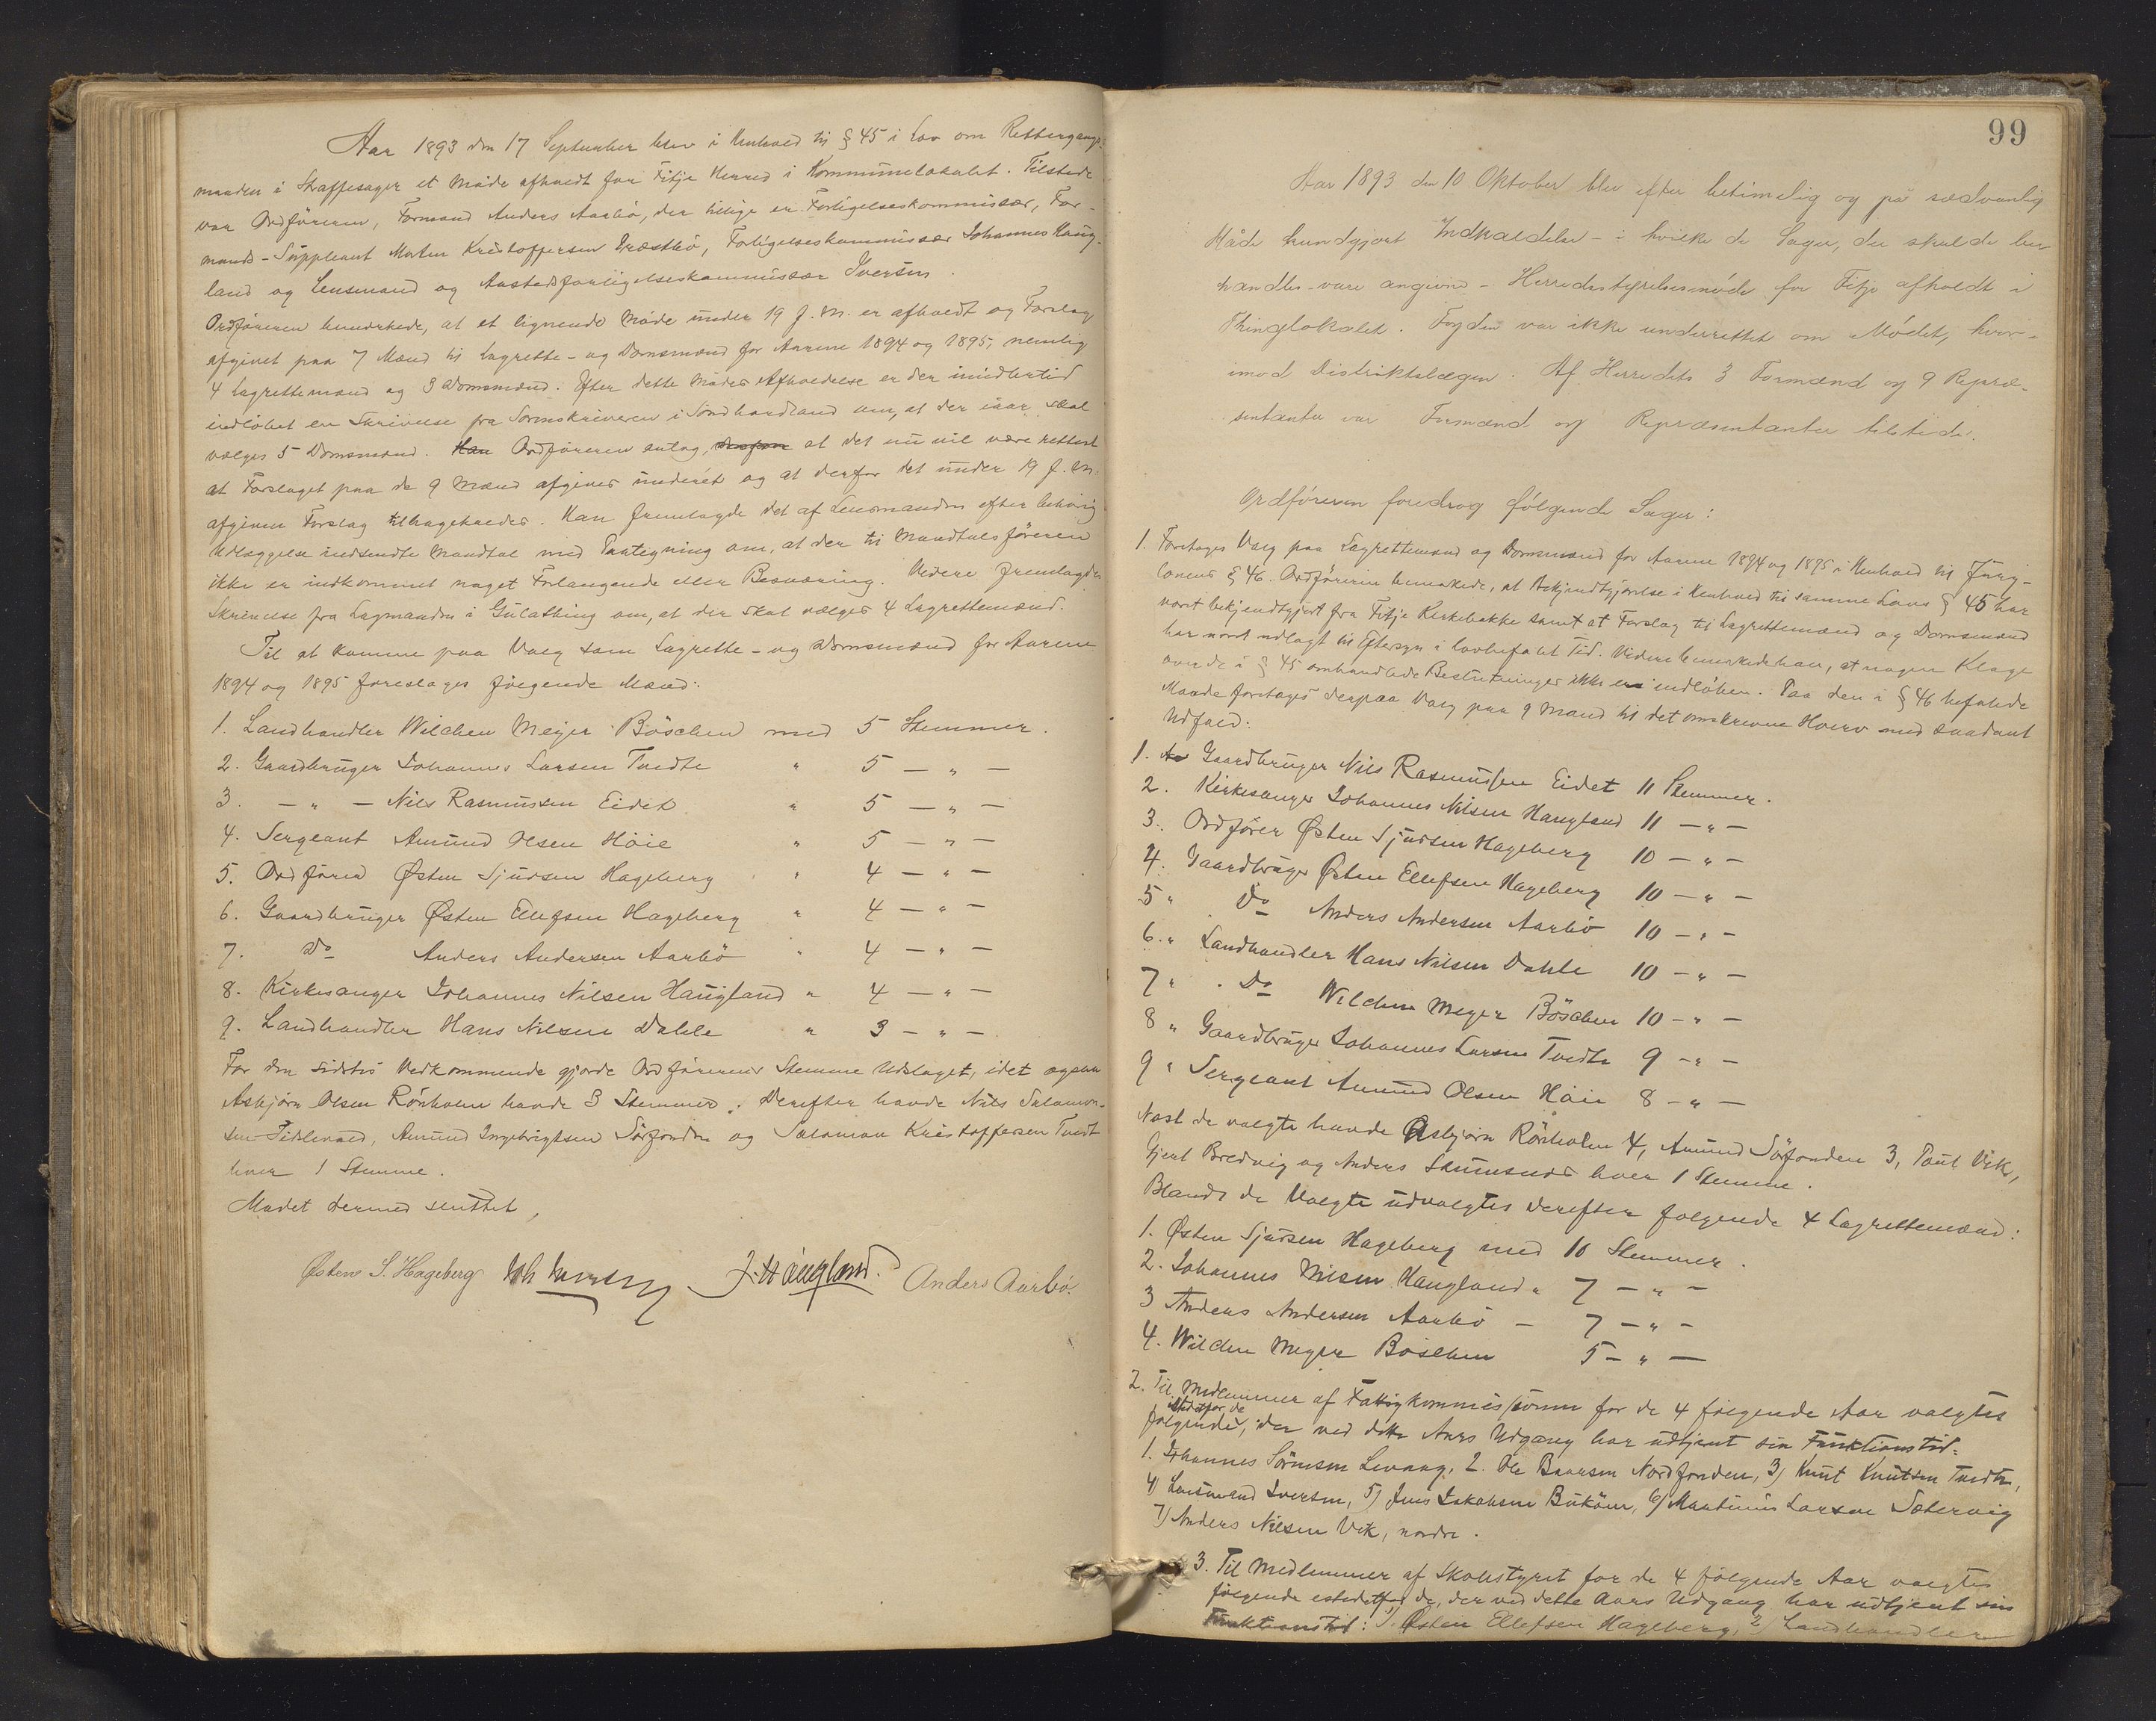 Aar 1893 den 17 September blev i Henhold til § 45 i Lov om Rettergangs-
maaden i Straffesager et Møde afholdt for Fitje Herred i Kommunelokalet. Tilstede
var Ordføreren, Formand Anders Aarbø, der tillige er Forligelseskommissær, For-
mands-Suppleant Morten Kristoffersen Træstbø, Forligelseskommissær Johannes Haug-
land og Lensmand og Aastedsforligelseskommissær Iversen.
Ordføreren bemærkede, at et lignende Møde under 19 f. M. er afholdt og Forslag
afgivet paa 7 Mænd til Lagrette- og Domsmænd for Aarene 1894 og 1895, nemlig
4 Lagrettemænd og 3 Domsmænd. Efter dette Mødes Afholdelse er der imidlertid
indløbet en Skrivelse fra Sorenskriveren i Søndhordland om, at der iaar skal
vælges 5 Domsmænd. Han Ordføreren antog, at det nu vil være rettest
at Forslaget paa de 9 Mænd afgives underet og at derfor det under 19 f. M.
afgivne Forslag tilbagekaldes. Han fremlagde det af Lensmanden efter behørig
Udlæggelse indsendte Mandtal med Paategning om, at der til Mandtalsføreren
ikke er indkommet noget Forlangende eller Besværing. Videre fremlagdes
Skrivelse fra Lagmanden i Gulathing om, at der skal vælges 4 Lagrettemænd.
Til at komme paa Valg som Lagrette- og Domsmænd for Aarene
1894 og 1895 foreslages følgende Mænd:
1. Landhandler Wilchen Meyer Böschen med 5 Stemmer.
2. Gaardbruger Johannes Larsen Tvedte " 5 — " —
3. — " — Nils Rasmussen Eidet " 5 — " —
4. Sergeant Amund Olsen Høie " 5 — " —
5. Ordfører Østen Sjursen Hageberg " 4 — " —
6. Gaardbruger Østen Ellefsen Hageberg " 4 — " —
7. Do Anders Andersen Aarbø " 4 — " —
8. Kirkesanger Johannes Nilsen Haugland " 4 — " —
9. Landhandler Hans Nilsen Dahle " 3 — " —
For den sidstes Vedkommende gjorde Ordførerens Stemme Udslaget, idet ogsaa
Asbjørn Olsen Rönholm havde 3 Stemmer. Derefter havde Nils Salamon-
sen Fidlevold, Amund Ingebrigtsen Sørfonden og Salamon Kristoffersen Tvedt
hver 1 Stemme.
Mødet dermed sluttet,
Østen S. Hageberg J. Haugland. Anders Aarbø.
99
Aar 1893 den 10 Oktober blev efter betimelig og på sædvanlig
Måde kundgjort Indkaldelse - i hvilke de Sager, der skulde be-
handles vare angivne - Herredsstyrelsesmøde for Fitje afholdt i
Thinglokalet. Fogden var ikke underrettet om Mødet, hvor-
imod Distriktslægen. Af Herredets 3 Formænd og 9 Repræ-
sentanter var Formænd og Repræsentanter tilstede.
Ordføreren foredrog følgende Sager:
1. Foretages Valg paa Lagrettemænd og Domsmænd for Aarene 1894 og 1895 i Henhold til Jury-
lovens § 46. Ordføreren bemærkede, at Bekjendtgjørelse i Henhold til samme Lovs § 45 har
været bekjendtgjort fra Fitje Kirkebakke samt at Forslag til Lagrettemænd og Domsmænd
har været udlagt til Eftersyn i lovbefalet Tid. Videre bemærkede han, at nogen Klage
over de i § 45 omhandlede Beslutninger ikke er indløben. Paa den i § 46 befalede
Maade foretages derpaa Valg paa 9 Mænd til det omskrevne Hverv med saadant
Udfald:
1. Gaardbruger Nils Rasmussen Eidet 11 Stemmer.
2. Kirkesanger Johannes Nilsen Haugland 11 — " —
3. Ordfører Østen Sjursen Hageberg 10 — " —
4. Gaardbruger Østen Ellefsen Hageberg 10 — " —
5 " Do Anders Andersen Aarbø 10 — " —
6. " Landhandler Hans Nilsen Dahle 10 — " —
7 " Do Wilchen Meyer Böschen 10 — " —
8 " Gaardbruger Johannes Larsen Tvedte 9 — " —
9 " Sergeant Amund Olsen Høie 8 — " —
Næst de valgte havde Asbjørn Rönholm 4, Amund Sørfonden 3, Poul Vik,
Gjert Bredvig og Anders Skumsnes hver 1 Stemme.
Blandt de Valgte udvalgtes derefter følgende 4 Lagrettemænd:
1. Østen Sjursen Hageberg med 10 Stemmer.
2. Johannes Nilsen Haugland " 7 — " —
3 Anders Andersen Aarbø — 7 — " —
4. Wilchen Meyer Böschen 5 — " —
2. Til Medlemmer af Fattigkommissionen for de 4 følgende Aar valgtes
følgende istedetfor de, der ved dette Aars Udgang har udtjent sin Funktionstid:
1. Johannes Sörensen Levaag, 2. Ole Baarsen Nordfonden, 3) Knut Knutsen Tvedte,
4) Lensmand Iversen, 5) Jens Jakobsen Buköen, 6) Martinus Larsen Sætervig
7) Anders Nilsen Vik, nordre.
3. Til Medlemmer af Skolestyret for de 4 følgende Aar valgtes
følgende istedetfor de, der ved dette Aars Udgang har udtjent sin
Funktionstid: 1) Østen Ellefsen Hageberg, 2) Landhandler